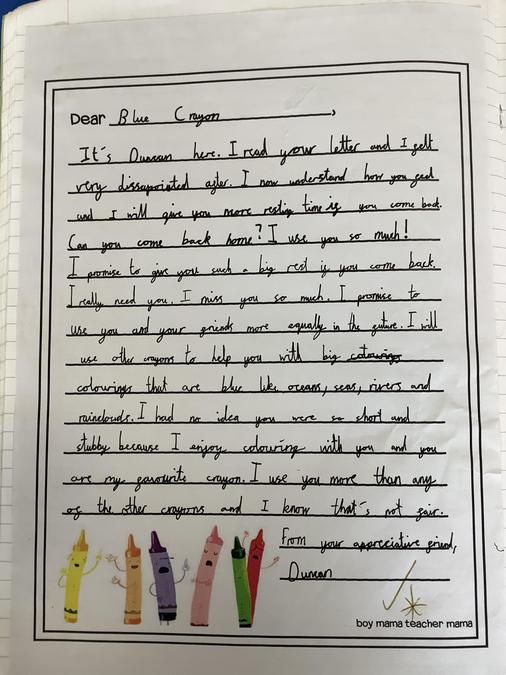 Dear Blue Crayon,
It's Duncan here. I read your letter and I felt
very dissapointed after. I now understand how you feel
and I will give you more resting time if you come back.
Can you come back home? I use you so much!
I promise to give you such a big rest if you come back.
I really need you. I miss you so much. I promise to
use you and your friends more equally in the future. I will
use other crayons to help you with big colourings
colourings that are blue like oceans, seas, rivers and
rainclouds. I had no idea you were so short and
stubby because I enjoy colouring with you and you
are my favourite crayon. I use you more than any
of the other crayons and I know that's not fair.
From your appreciative friend,
Duncan
boy mama teacher mama